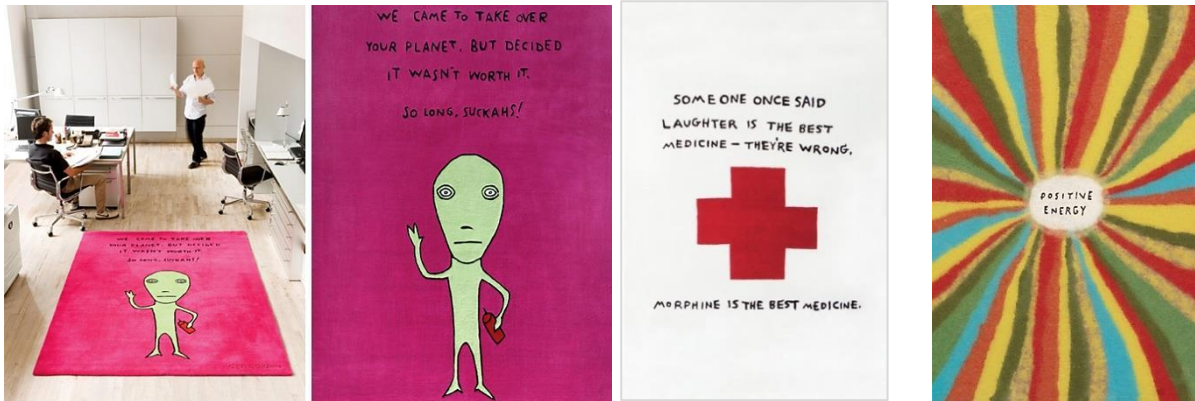 WE CAME TO TAKE OVER
YOUR PLANET, BUT DECIDED
IT WASN'T WORTH IT.
SO LONG, SUCKAHS!
WE CAME TO TAKE OVER
YOUR PLANET, BUT DECIDED
IT WASN'T WORTH IT.
SO LONG, SUCKAHS!
SOMEONE ONCE SAID
LAUGHTER IS THE BEST
MEDICINE - THEY'RE WRONG.
MORPHINE IS THE BEST MEDICINE.
POSITIVE
ENERGY